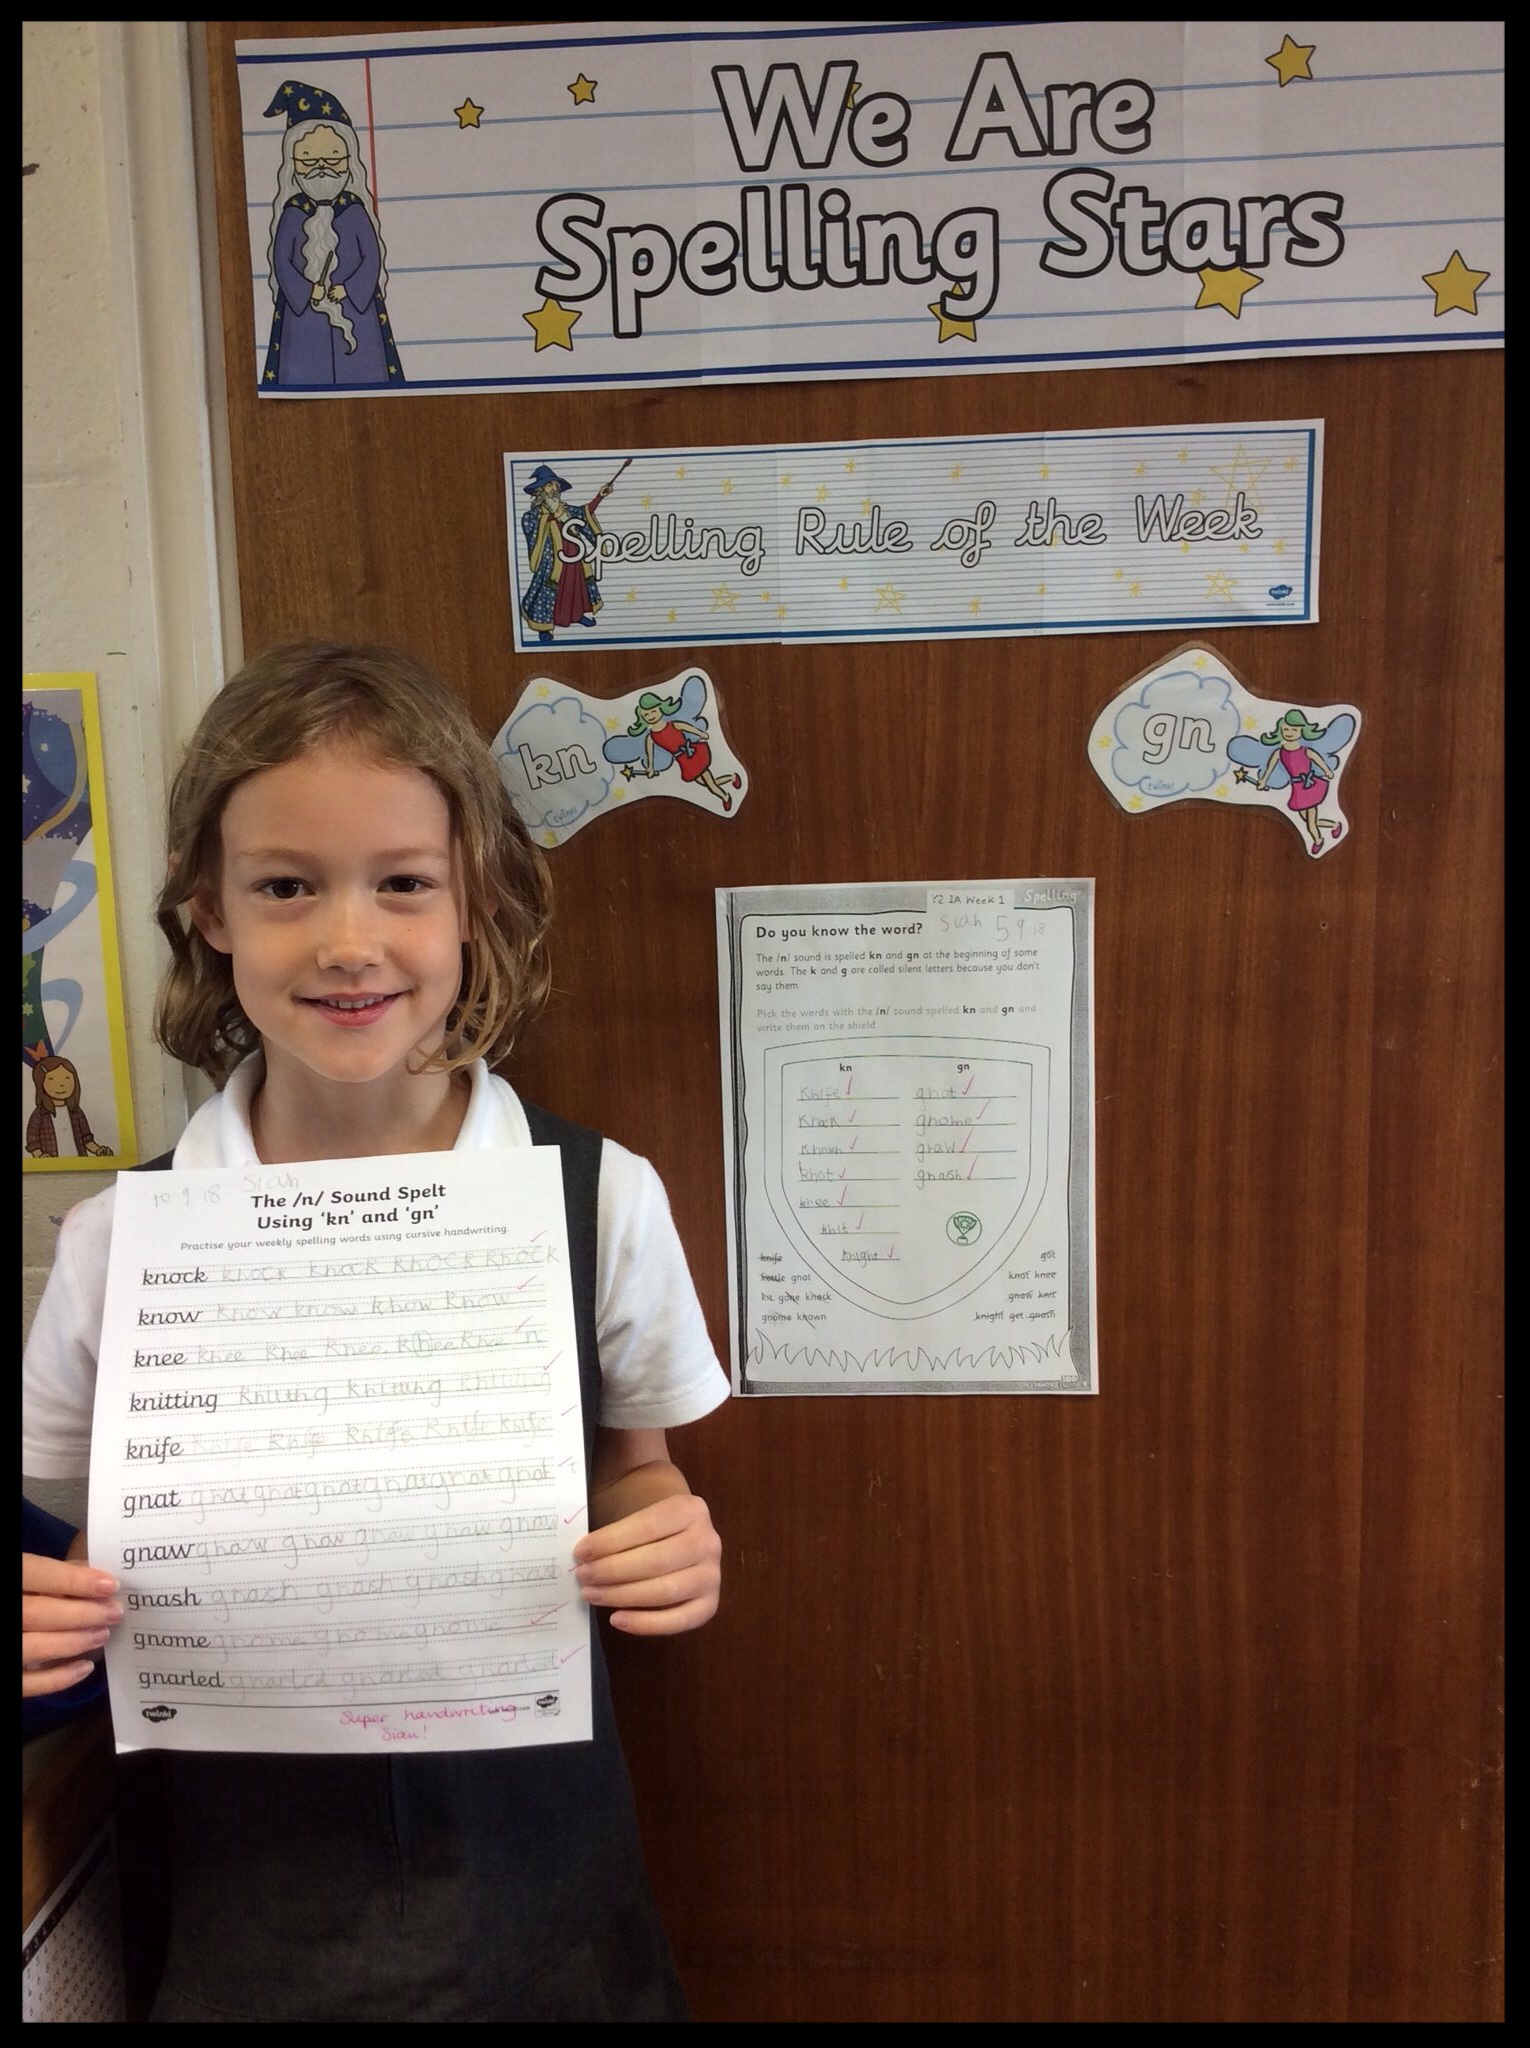 We Are
Spelling Stars
Spelling Rule of the Week
twinkl
kn
twinkl
gn
twinkl
Y2 1A Week 1
Spelling
Do you know the word?
Sian 5 9 18
The /n/ sound is spelled kn and gn at the beginning of some
words. The k and g are called silent letters because you don't
say them.
Pick the words with the /n/ sound spelled kn and gn and
write them on the shield.
kn gn
Knife gnat
Knack gnome
Known gnaw
knot gnash
knee
knit
Knight
knife got
kettle gnat knot knee
kit gone knack gnaw knit
gnome known knight get gnash
10 9 18 Sian
The /n/ Sound Spelt
Using 'kn' and 'gn'
Practise your weekly spelling words using cursive handwriting.
knock knock knock knock knock
know know know know know
knee knee knee knee knee knee n
knitting knitting knitting knitting
knife knife knife knife knife knife
gnat gnat gnat gnat gnat gnat gnat t
gnaw gnaw gnaw gnaw gnaw gnaw
gnash gnash gnash gnash gnash
gnome gnome gnome gnome
gnarled gnarled gnarled gnarled
twinkl
Super handwriting
Sian!